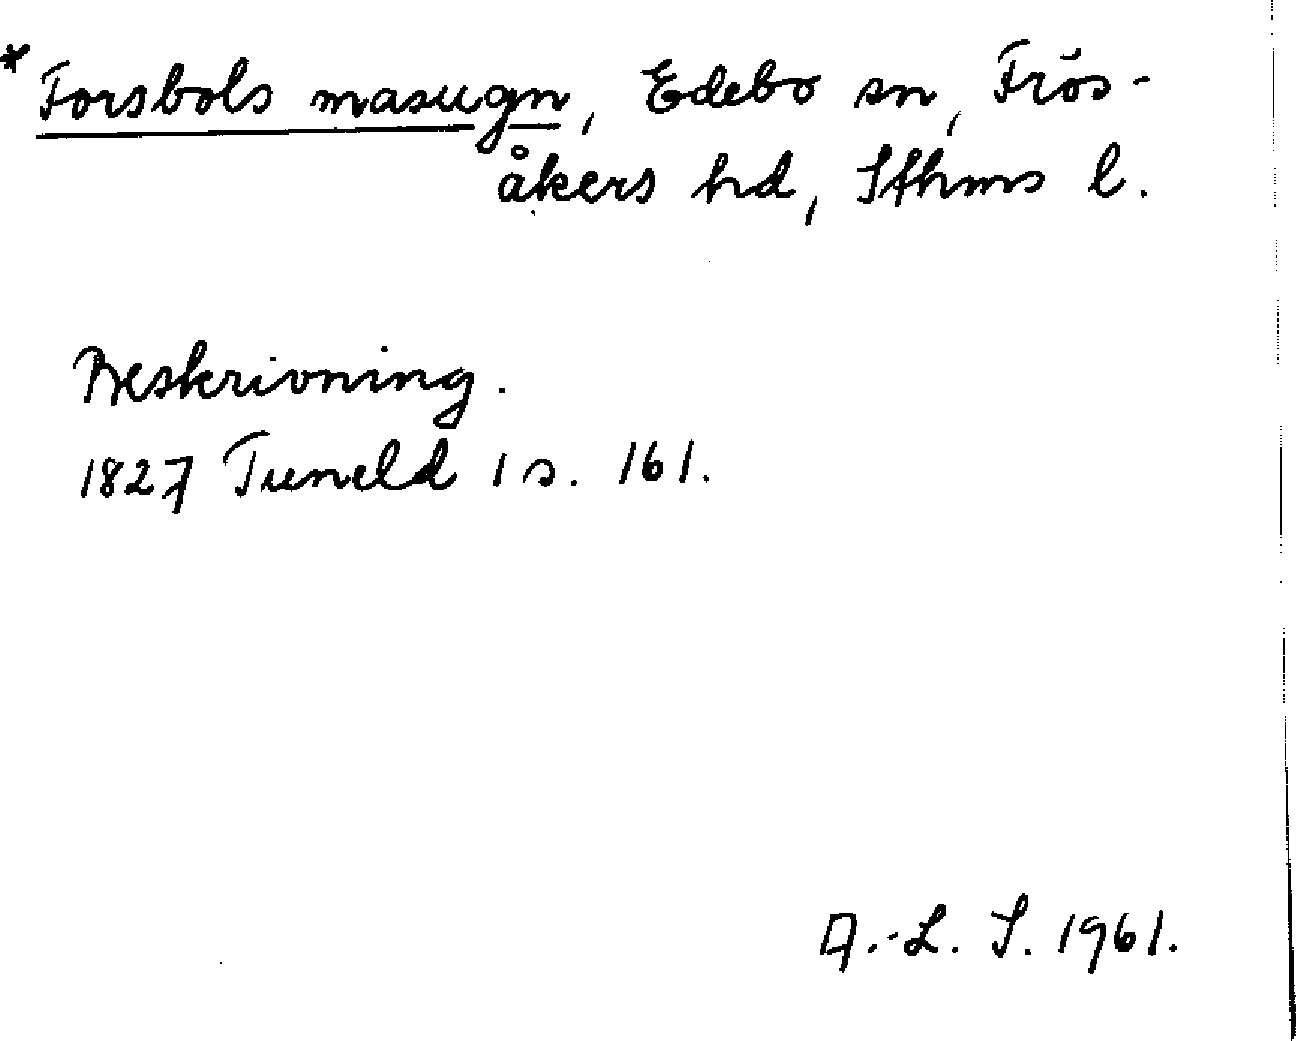 * Forsbols masugn, Edebo sn, Frös-
åkers hd, Sthms l.
Beskrivning.
1827 Tuneld 1 s. 161.
A.-L. S. 1961.